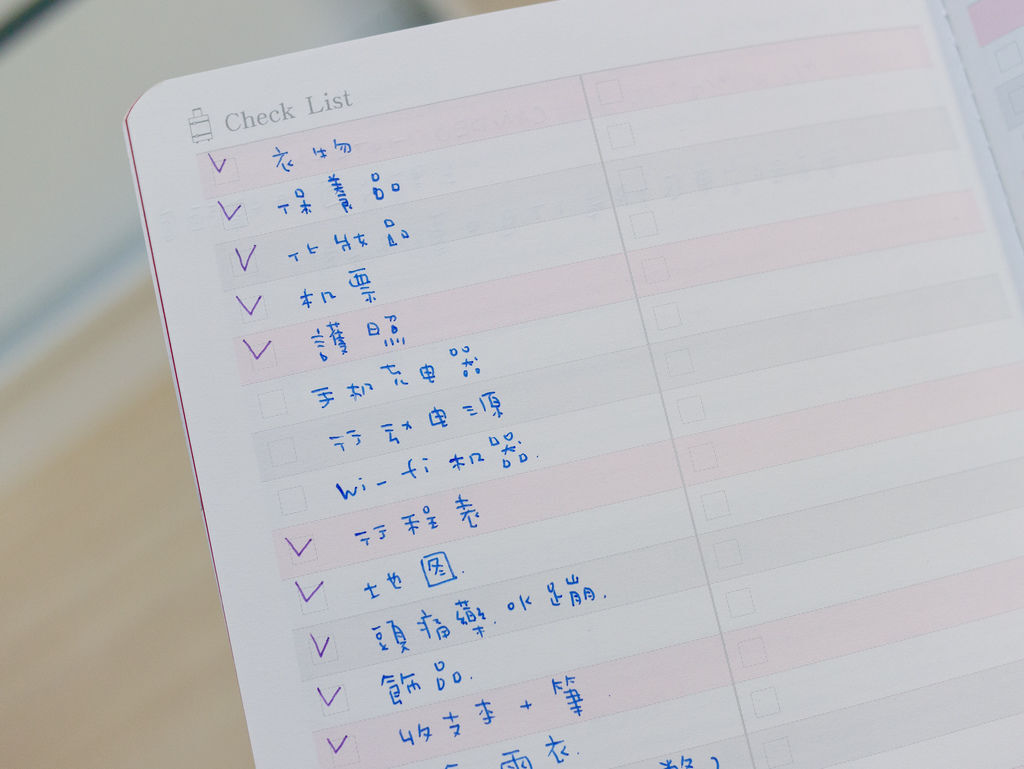 Check List
衣物
保養品
化妝品
机票
護照
手机充电器
行动电源
wi-fi机器.
行程表
地图.
頭痛藥. OK蹦.
飾品.
收支本+筆
雨衣.